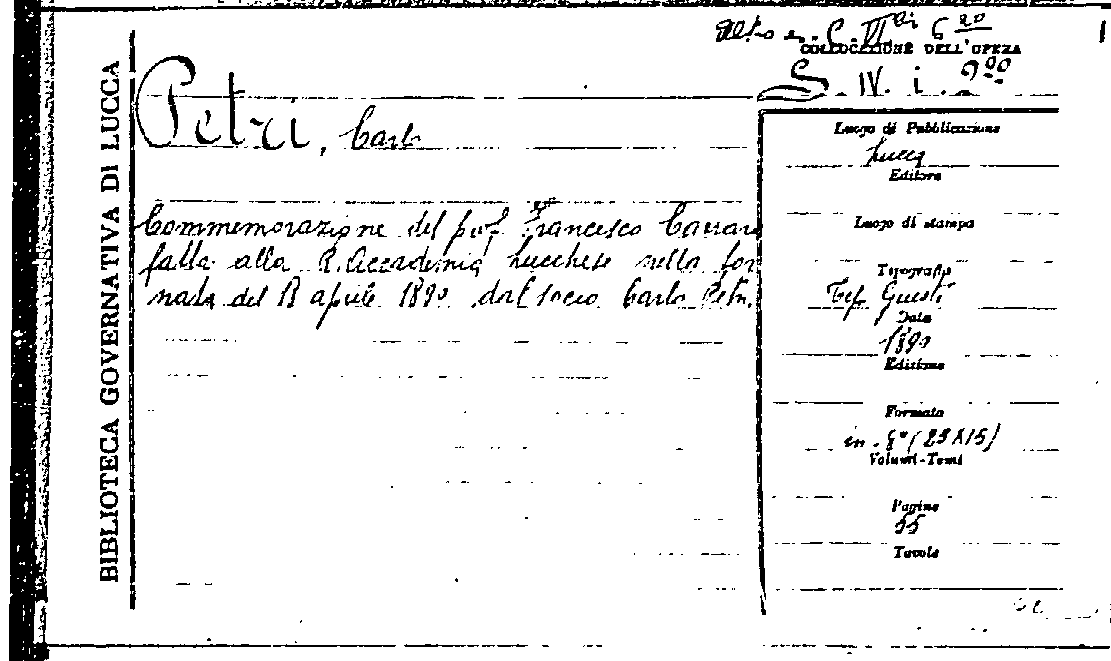 BIBLIOTECA GOVERNATIVA DI LUCCA
COLLOCAZIONE DELL'OPERA
S. IV. i. 200
Petri, Carlo
Commemorazione del prof. Francesco Carrara
fatta alla R. Accademia Lucchese nella tor
nata del 18 aprile 1890 dal socio Carlo Petri.
Luogo di Pubblicazione
Lucca
Editore
Luogo di stampa
Tipografia
Tip. Giusti
Data
1890
Edizione
Formato
in. 8° (23X15)
Volumi-Tomi
Pagine
55
Tavole